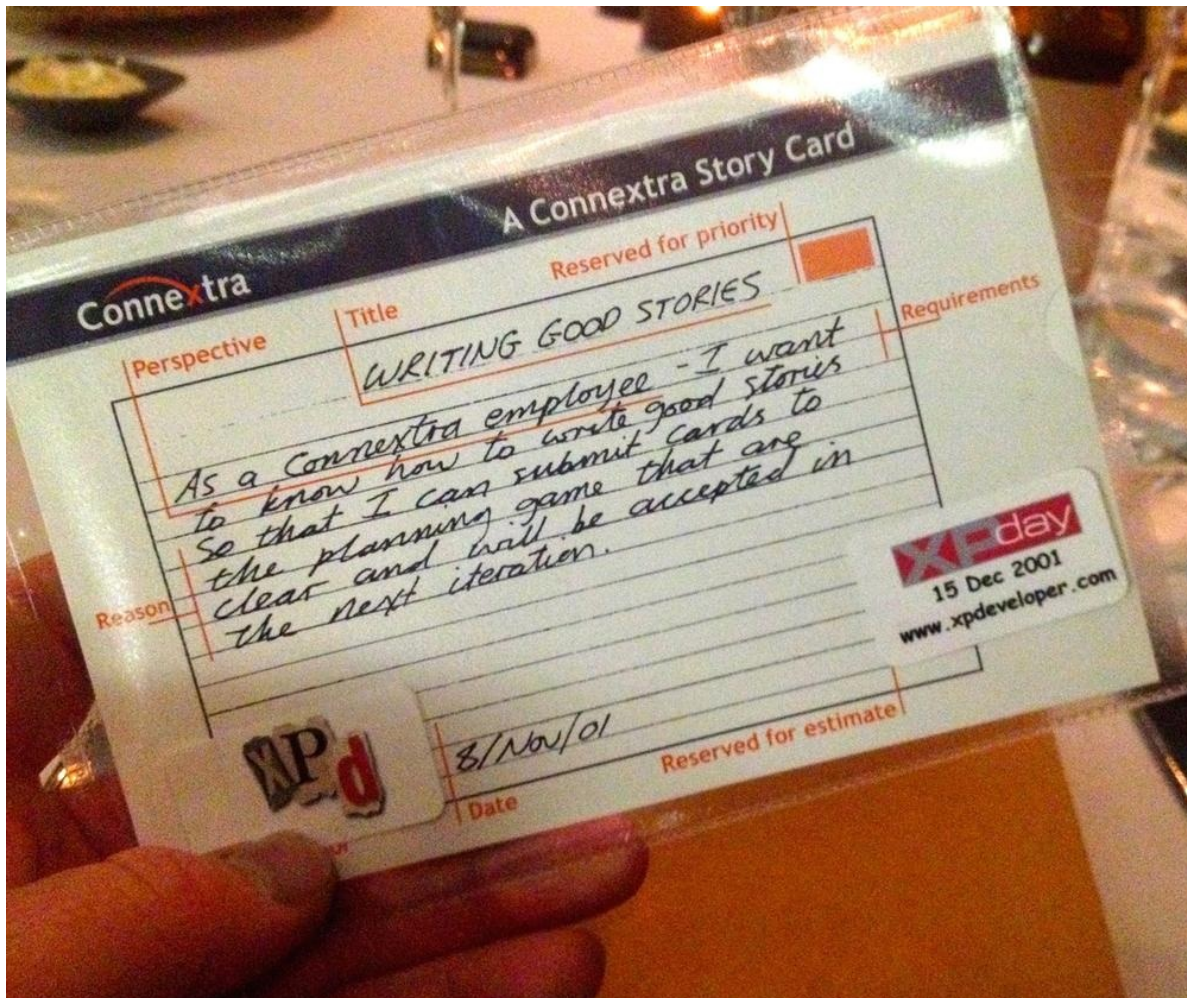 A Connextra Story Card
Connextra
Perspective
Title
Reserved for priority
WRITING GOOD STORIES
Requirements
As a Connextra employee - I want
to know how to write good stories
so that I can submit cards to
the planning game that are
clear and will be accepted in
the next iteration.
Reason
XPday
15 Dec 2001
www.xpdeveloper.com
XPd
8/Nov/01
Date
Reserved for estimate